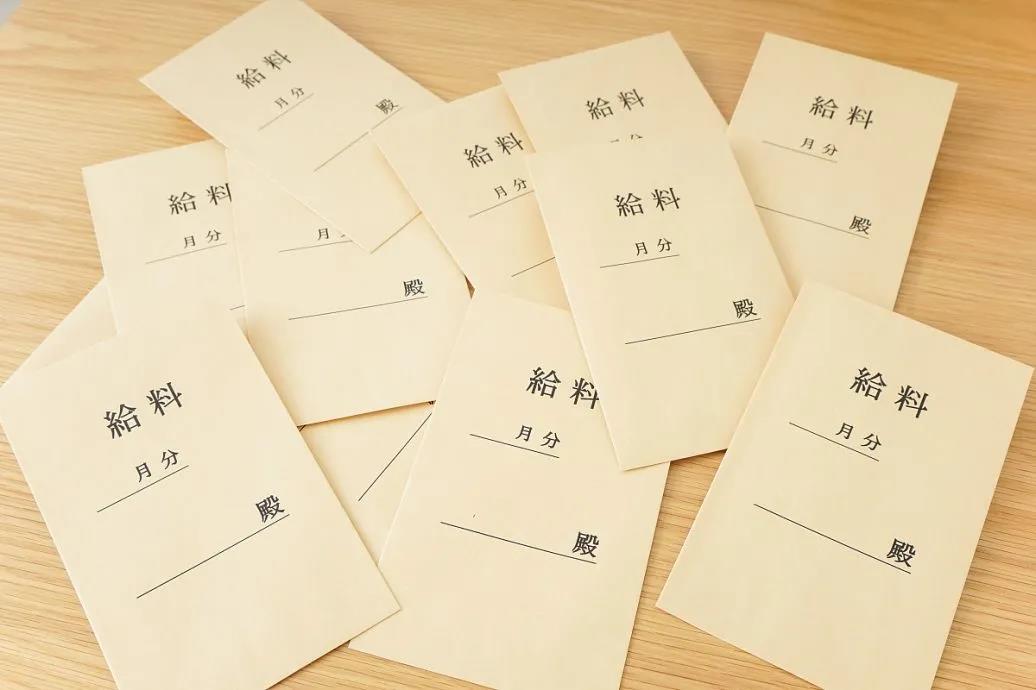 給料
月分
殿
給料
月分
給料
給料
月分
殿
給料
月分
月分
殿
給料
月分
殿
給料
月分
殿
給料
月分
殿
給料
月分
殿